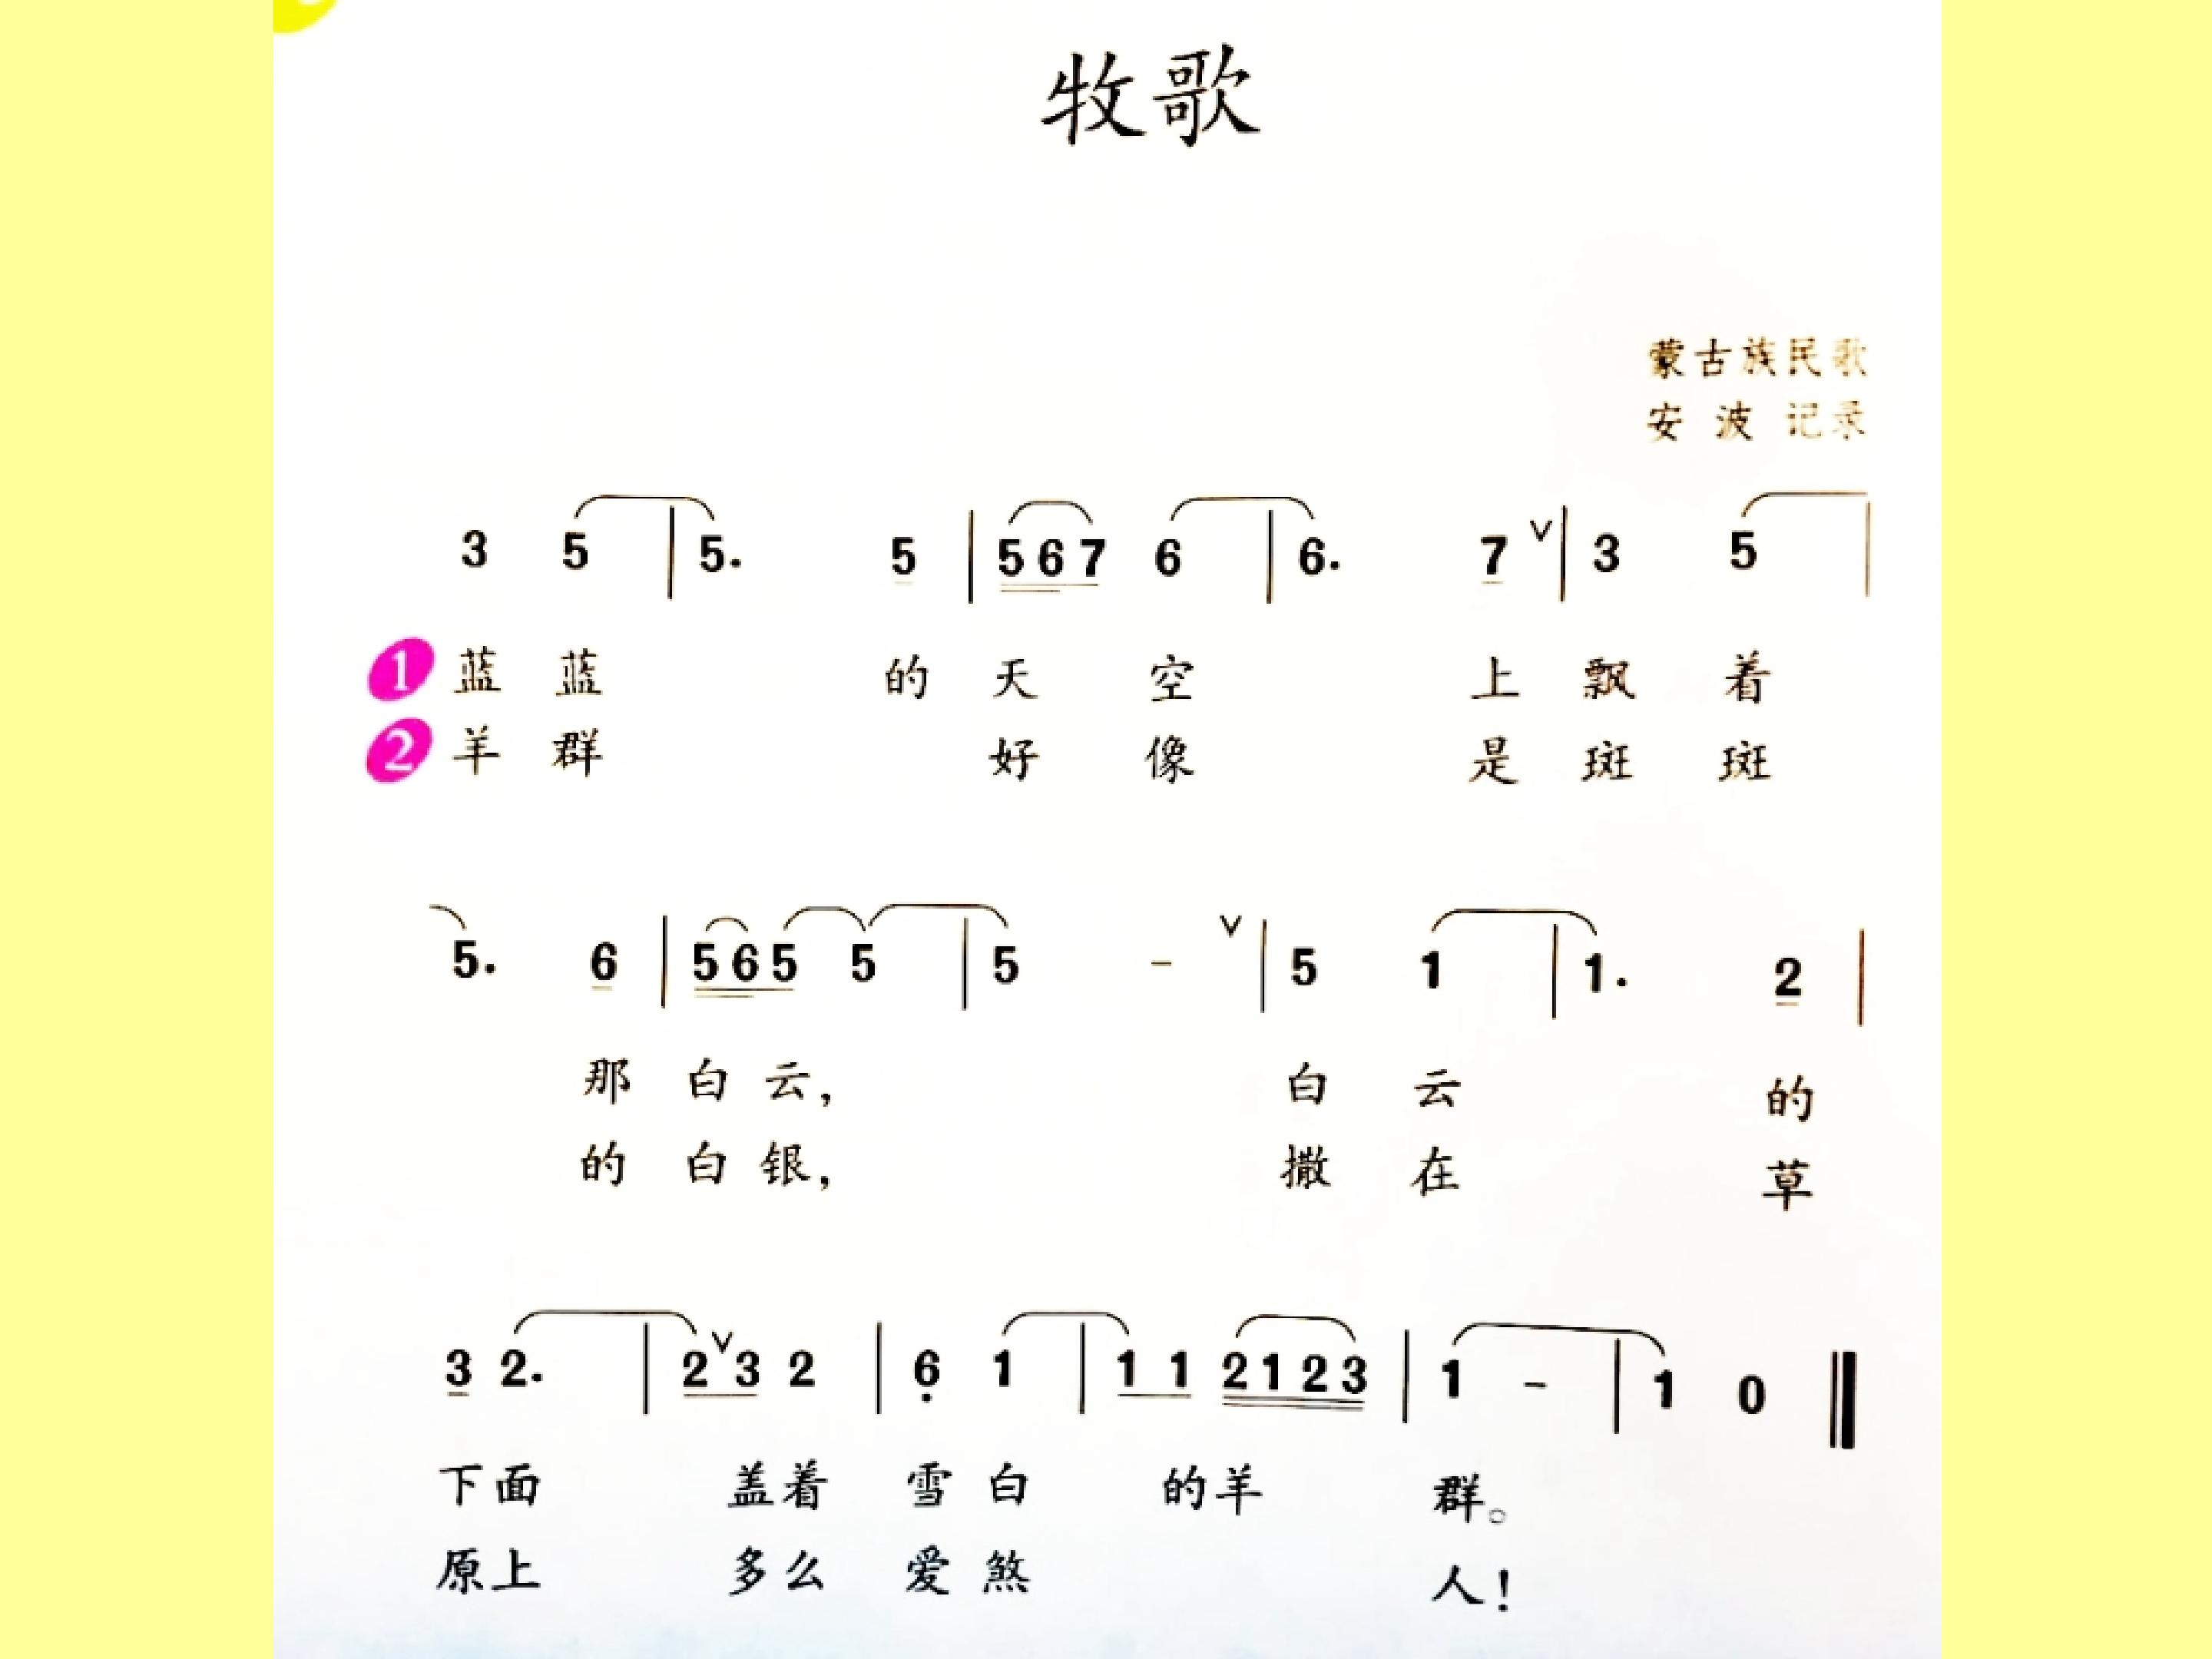 牧歌
蒙古族民歌
安 波 记录
3 5 | 5. 5 | 5 6 7 6 | 6. 7 ∨ | 3 5 |
1 蓝 蓝 的 天 空 上 飘 着
2 羊 群 好 像 是 斑 斑
5. 6 | 5 6 5 5 | 5 - ∨ | 5 1 | 1. 2 |
那 白 云, 白 云 的
的 白 银, 撒 在 草
3 2. | 2 ∨ 3 2 | 6 1 | 1 1 2 1 2 3 | 1 - | 1 0 ‖
下 面 盖 着 雪 白 的 羊 群。
原 上 多 么 爱 煞 人!